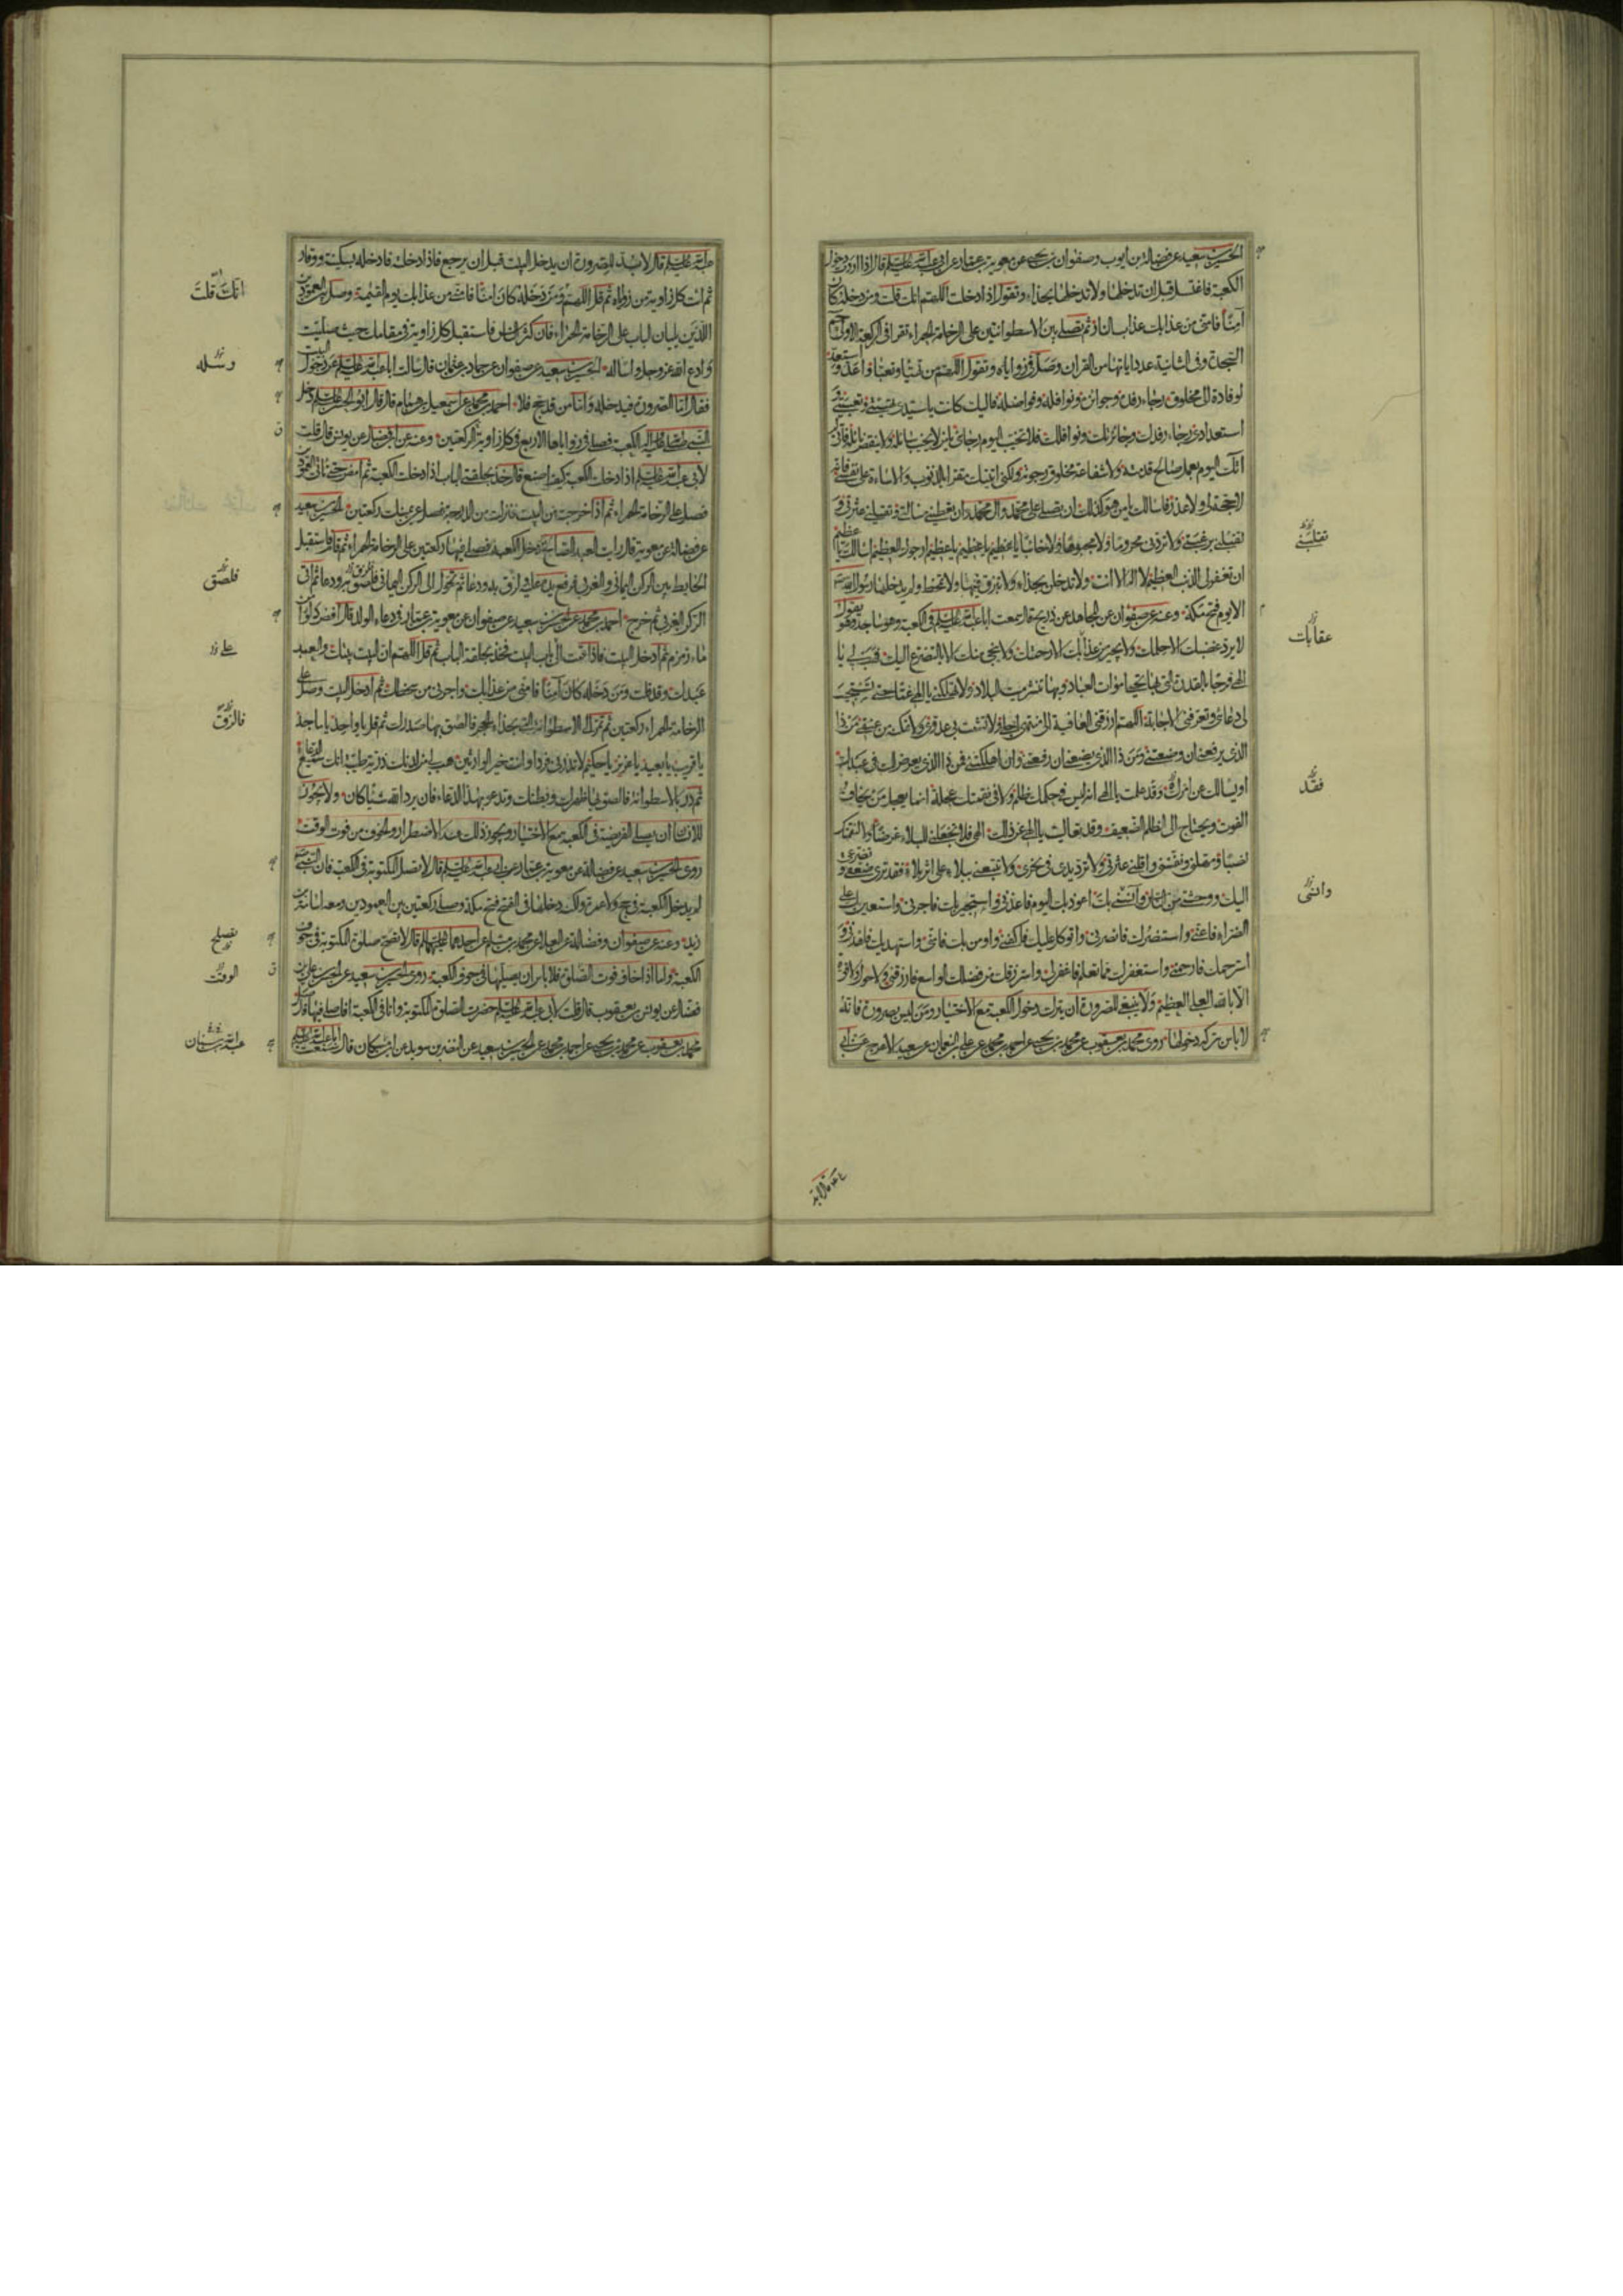 الحسين بن سعيد عن فضالة بن أيوب وصفوان بن يحيى عن معوية بن عمار عن أبي عبد الله عليه السلم قال اذا اردت دخول
الكعبة فاغتسل قبل ان تدخلها ولا تدخلها بحذاء وتقول اذا دخلت اللهم انك قلت ومن دخله كان
آمنا فامنى من عذابك عذاب النار ثم تصلى بين الاسطوانتين على الرخامة الحمراء تقرأ فى الركعة الاولى حم
السجدة وفى الثانية عدد اياتها من القران وصل فى زواياه وتقول اللهم من تهيأ وتعبأ واعد واستعد
لوفادة الى مخلوق رجاء رفده وجوائزه ونوافله وفواضله فاليك كانت يا سيدى تهيئتى وتعبيتى و
استعدادى رجاء رفدك وجائزتك ونوافلك فلا تخيب اليوم رجائى يا من لا يخيب سائله ولا ينقص نائله فانى لم
اتك اليوم بعمل صالح قدمته ولا شفاعة مخلوق رجوته ولكنى اتيتك مقرا بالذنوب والاساءة على نفسى فانه
لا حجة لى ولا عذر فاسالك يا من هو كذلك ان تصلى على محمد وال محمد وان تعطينى مسالتى وتقيلنى عثرتى و
تقلبنى برغبتى ولا تردنى محروما ولا مجبوها ولا خائبا يا عظيم يا عظيم يا عظيم ارجوك للعظيم اسالك يا عظيم
ان تغفر لى الذنب العظيم لا اله الا انت ولا تدخلن بحذاء ولا تبزق فيها ولا تمخط ولم يدخلها رسول الله ص
الا يوم فتح مكة وعنه عن صفوان عن ذريح قال سمعت ابا عبد الله عليه السلم فى الكعبة وهو ساجد وهو يقول
لا يرد غضبك الا حلمك ولا يجير من عذابك الا رحمتك ولا ينجى منك الا التضرع اليك فهب لى يا
الهى فرجا بالقدرة التى بها تحيى اموات العباد وبها تنشر ميت البلاد ولا تهلكنى يا الهى غما حتى تستجيب
لى دعائى وتعرفنى الاجابة اللهم ارزقنى العافية الى منتهى اجلى ولا تشمت بى عدوى ولا تمكنه من عنقى من ذا
الذى يرفعنى ان وضعتنى ومن ذا الذى يضعنى ان رفعتنى وان اهلكتنى فمن ذا الذى يعرض لك فى عبدك
او يسالك عن امره وقد علمت يا الهى انه ليس فى حكمك ظلم ولا فى نقمتك عجلة انما يعجل من يخاف
الفوت ويحتاج الى الظلم الضعيف وقد تعاليت يا الهى عن ذلك الهى فلا تجعلنى للبلاء غرضا ولا لنقمتك
نصبا ومهلنى ونفسنى واقلنى عثرتى ولا ترد يدى فى نحرى ولا تتبعنى ببلاء على اثر بلاء فقد ترى ضعفى وتضرعى
اليك ووحشتى من الناس وآنسنى بك اعوذ بك اليوم فاعذنى واستجير بك فاجرنى واستعين بك على
الضراء فاعنى واستنصرك فانصرنى واتوكل عليك فاكفنى واومن بك فامنى واستهديك فاهدنى و
استرحمك فارحمنى واستغفرك مما تعلم فاغفر لى واسترزقك من فضلك الواسع فارزقنى ولا حول ولا قوة
الا بالله العلى العظيم ولا ينبغى للصرورة ان يترك دخول الكعبة مع الاختيار ومن ليس بصرورة فانه
لا باس بتركه دخولها روى محمد بن يعقوب عن محمد بن يحيى عن احمد بن محمد عن على بن النعمان عن سعيد الاعرج عن ابى
تقلبنى
عقابك
فقد
وانسى
عبد الله عليه السلم قال لا بد للصرورة ان يدخل البيت قبل ان يرجع فاذا دخلت فادخله بسكينة ووقار
ثم ائت كل زاوية من زواياه ثم قل اللهم ومن دخله كان امنا فامنى من عذابك يوم القيمة وصل بين العمودين
اللذين يليان الباب على الرخامة الحمراء فان كثر الناس فاستقبل كل زاوية فى مقامك حيث صليت
وادع الله عز وجل واساله الحسين بن سعيد عن صفوان عن حماد بن عثمان قال سالت ابا عبد الله عليه السلم عن دخول البيت
فقال اما الصرورة فيدخله واما من قد حج فلا احمد بن محمد عن اسمعيل بن همام قال قال ابو الحسن عليه السلم دخل
النبى صلى الله عليه واله الكعبة فصلى فى زواياها الاربع فى كل زاوية ركعتين وعنه عن ابن فضال عن يونس قال قلت
لابى عبد الله عليه السلم اذا دخلت الكعبة كيف اصنع قال خذ بحلقتى الباب اذا دخلت الكعبة ثم امض حتى تاتى العمودين
فصل على الرخامة الحمراء ثم اذا خرجت من البيت فنزلت من الدرجة فصل عن يمينك ركعتين الحسين بن سعيد
عن فضالة عن معوية قال رايت العبد الصالح دخل الكعبة فصلى فيها ركعتين على الرخامة الحمراء ثم قام فاستقبل
الحايط بين الركن اليمانى والغربى فرفع يده عليه ولزق به ودعا ثم تحول الى الركن اليمانى فلصق به ودعا ثم اتى
الركن الغربى ثم خرج احمد بن محمد عن الحسين بن سعيد عن صفوان عن معوية بن عمار فى دعاء الولد قال افض دلوا من
ماء زمزم ثم ادخل البيت فاذا قمت الى باب البيت فخذ بحلقة الباب ثم قل اللهم ان البيت بيتك والعبد
عبدك وقد قلت ومن دخله كان آمنا فامنى من عذابك واجرنى من سخطك ثم ادخل البيت وصل على
الرخامة الحمراء ركعتين ثم قم الى الاسطوانة التى بحذاء الحجر فالصق بها صدرك ثم قل يا واحد يا ماجد
يا قريب يا بعيد يا عزيز يا حكيم لا تذرنى فردا وانت خير الوارثين هب لى من لدنك ذرية طيبة انك سميع الدعاء
ثم در بالاسطوانة فالصق بها ظهرك وبطنك وتدعو بهذا الدعاء فان يرد الله شيئا كان ولا يجوز
للانسان ان يصلى الفريضة فى الكعبة مع الاختيار ويجوز ذلك عند الاضطرار والخوف من فوت الوقت
روى الحسين بن سعيد عن فضالة عن معوية بن عمار عن ابى عبد الله عليه السلم قال لا تصل المكتوبة فى الكعبة فان النبى ص
لم يدخل الكعبة فى حج ولا عمرة ولكنه دخلها فى الفتح فتح مكة وصلى ركعتين بين العمودين ومعه اسامة بن
زيد وعنه عن صفوان وفضالة عن العلا عن محمد بن مسلم عن احدهما عليهما السلم قال لا تصلح صلوة المكتوبة فى جوف
الكعبة واما اذا خاف فوت الصلوة فلا باس ان يصليها فى جوف الكعبة روى الحسين بن سعيد عن الحسن بن على بن
فضال عن يونس بن يعقوب قال قلت لابى عبد الله عليه السلم حضرت الصلوة المكتوبة وانا فى الكعبة افاصلى فيها قال صل
محمد بن يعقوب عن محمد بن يحيى عن احمد بن محمد عن الحسين بن سعيد عن النضر بن سويد عن ابن مسكان قال سمعت ابا عبد الله عليه السلم
انك قلت
وسله
فلصق
على
فالزق
تصلح
الوقت
عبد الله بن سنان